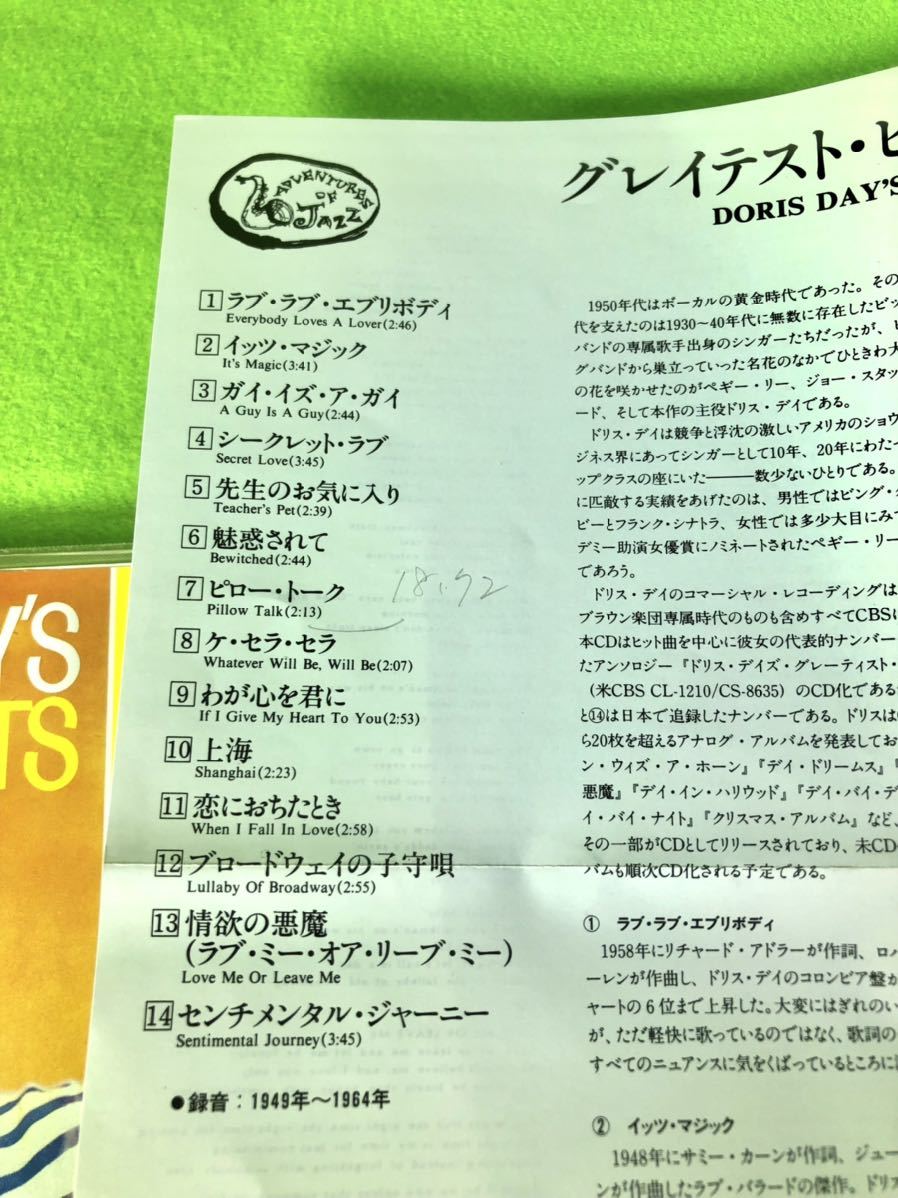 ADVENTURES
OF
JAZZ
グレイテスト・ヒ
DORIS DAY'S
1 ラブ・ラブ・エブリボディ
Everybody Loves A Lover(2:46)
2 イッツ・マジック
It's Magic(3:41)
3 ガイ・イズ・ア・ガイ
A Guy Is A Guy(2:44)
4 シークレット・ラブ
Secret Love(3:45)
5 先生のお気に入り
Teacher's Pet(2:39)
6 魅惑されて
Bewitched(2:44)
7 ピロー・トーク
Pillow Talk(2:13)
18.92
8 ケ・セラ・セラ
Whatever Will Be, Will Be(2:07)
9 わが心を君に
If I Give My Heart To You(2:53)
10 上海
Shanghai(2:23)
11 恋におちたとき
When I Fall In Love(2:58)
12 ブロードウェイの子守唄
Lullaby Of Broadway(2:55)
13 情欲の悪魔
(ラブ・ミー・オア・リーブ・ミー)
Love Me Or Leave Me
14 センチメンタル・ジャーニー
Sentimental Journey(3:45)
●録音：1949年〜1964年
1950年代はボーカルの黄金時代であった。その
代を支えたのは1930〜40年代に無数に存在したビッ
バンドの専属歌手出身のシンガーたちだったが、ビ
グバンドから巣立っていった名花のなかでひときわ大
の花を咲かせたのがペギー・リー、ジョー・スタッ
ード、そして本作の主役ドリス・デイである。
ドリス・デイは競争と浮沈の激しいアメリカのショウ
ジネス界にあってシンガーとして10年、20年にわたっ
ップクラスの座にいた―――数少ないひとりである。
に匹敵する実績をあげたのは、男性ではビング・
ビーとフランク・シナトラ、女性では多少大目にみて
デミー助演女優賞にノミネートされたペギー・リー
であろう。
ドリス・デイのコマーシャル・レコーディングは
ブラウン楽団専属時代のものも含めすべてCBSに
本CDはヒット曲を中心に彼女の代表的ナンバー
たアンソロジー『ドリス・デイズ・グレーティスト・
（米CBS CL-1210/CS-8635）のCD化である
と⑭は日本で追録したナンバーである。ドリスは
ら20枚を超えるアナログ・アルバムを発表してお
ン・ウィズ・ア・ホーン』『デイ・ドリームス』『
悪魔』『デイ・イン・ハリウッド』『デイ・バイ・デ
イ・バイ・ナイト』『クリスマス・アルバム』など、
その一部がCDとしてリリースされており、未CD
バムも順次CD化される予定である。
① ラブ・ラブ・エブリボディ
1958年にリチャード・アドラーが作詞、ロバ
ーレンが作曲し、ドリス・デイのコロンビア盤が
ャートの6位まで上昇した。大変にはぎれのい
が、ただ軽快に歌っているのではなく、歌詞の
すべてのニュアンスに気をくばっているところに
② イッツ・マジック
1948年にサミー・カーンが作詞、ジュー
ンが作曲したラブ・バラードの傑作。ドリス
Y'S
TS